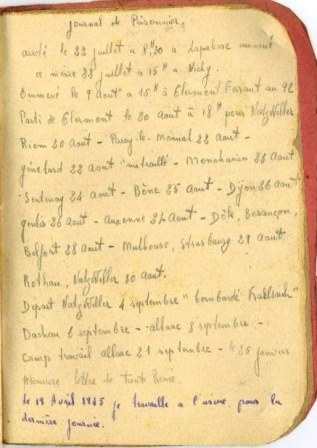 Journal de Prisonnier,
arrêté le 22 juillet a 8h,30 a Lapalisse
ce même 22 juillet a 15h a Vichy.
Emmené le 9 aout a 15h à Clermont Ferrant au 92
Parti de Clermont le 20 aout à 18h pour NatzWiller
Riom 20 aout - Paray-le-Monial 22 aout -
22 aout "mitraillé" - 23 aout
24 aout - 25 aout - Dijon 26 aout
26 aout - Auxonne 27 Aout - Dôle, Besançon,
Belfort 28 aout - Mulhouse, Strasbourg 29 aout
Rothau, NatzWiller 30 aout.
Depart NatzWiller 4 septembre "bombardé Kalsruh"
Dachau 6 septembre - allare 8 septembre -
Camp travail allare 21 septembre - 25 janvier
première lettre de Tante
le 19 Avril 1945 je travaille a l'usine pour la
dernière journée.